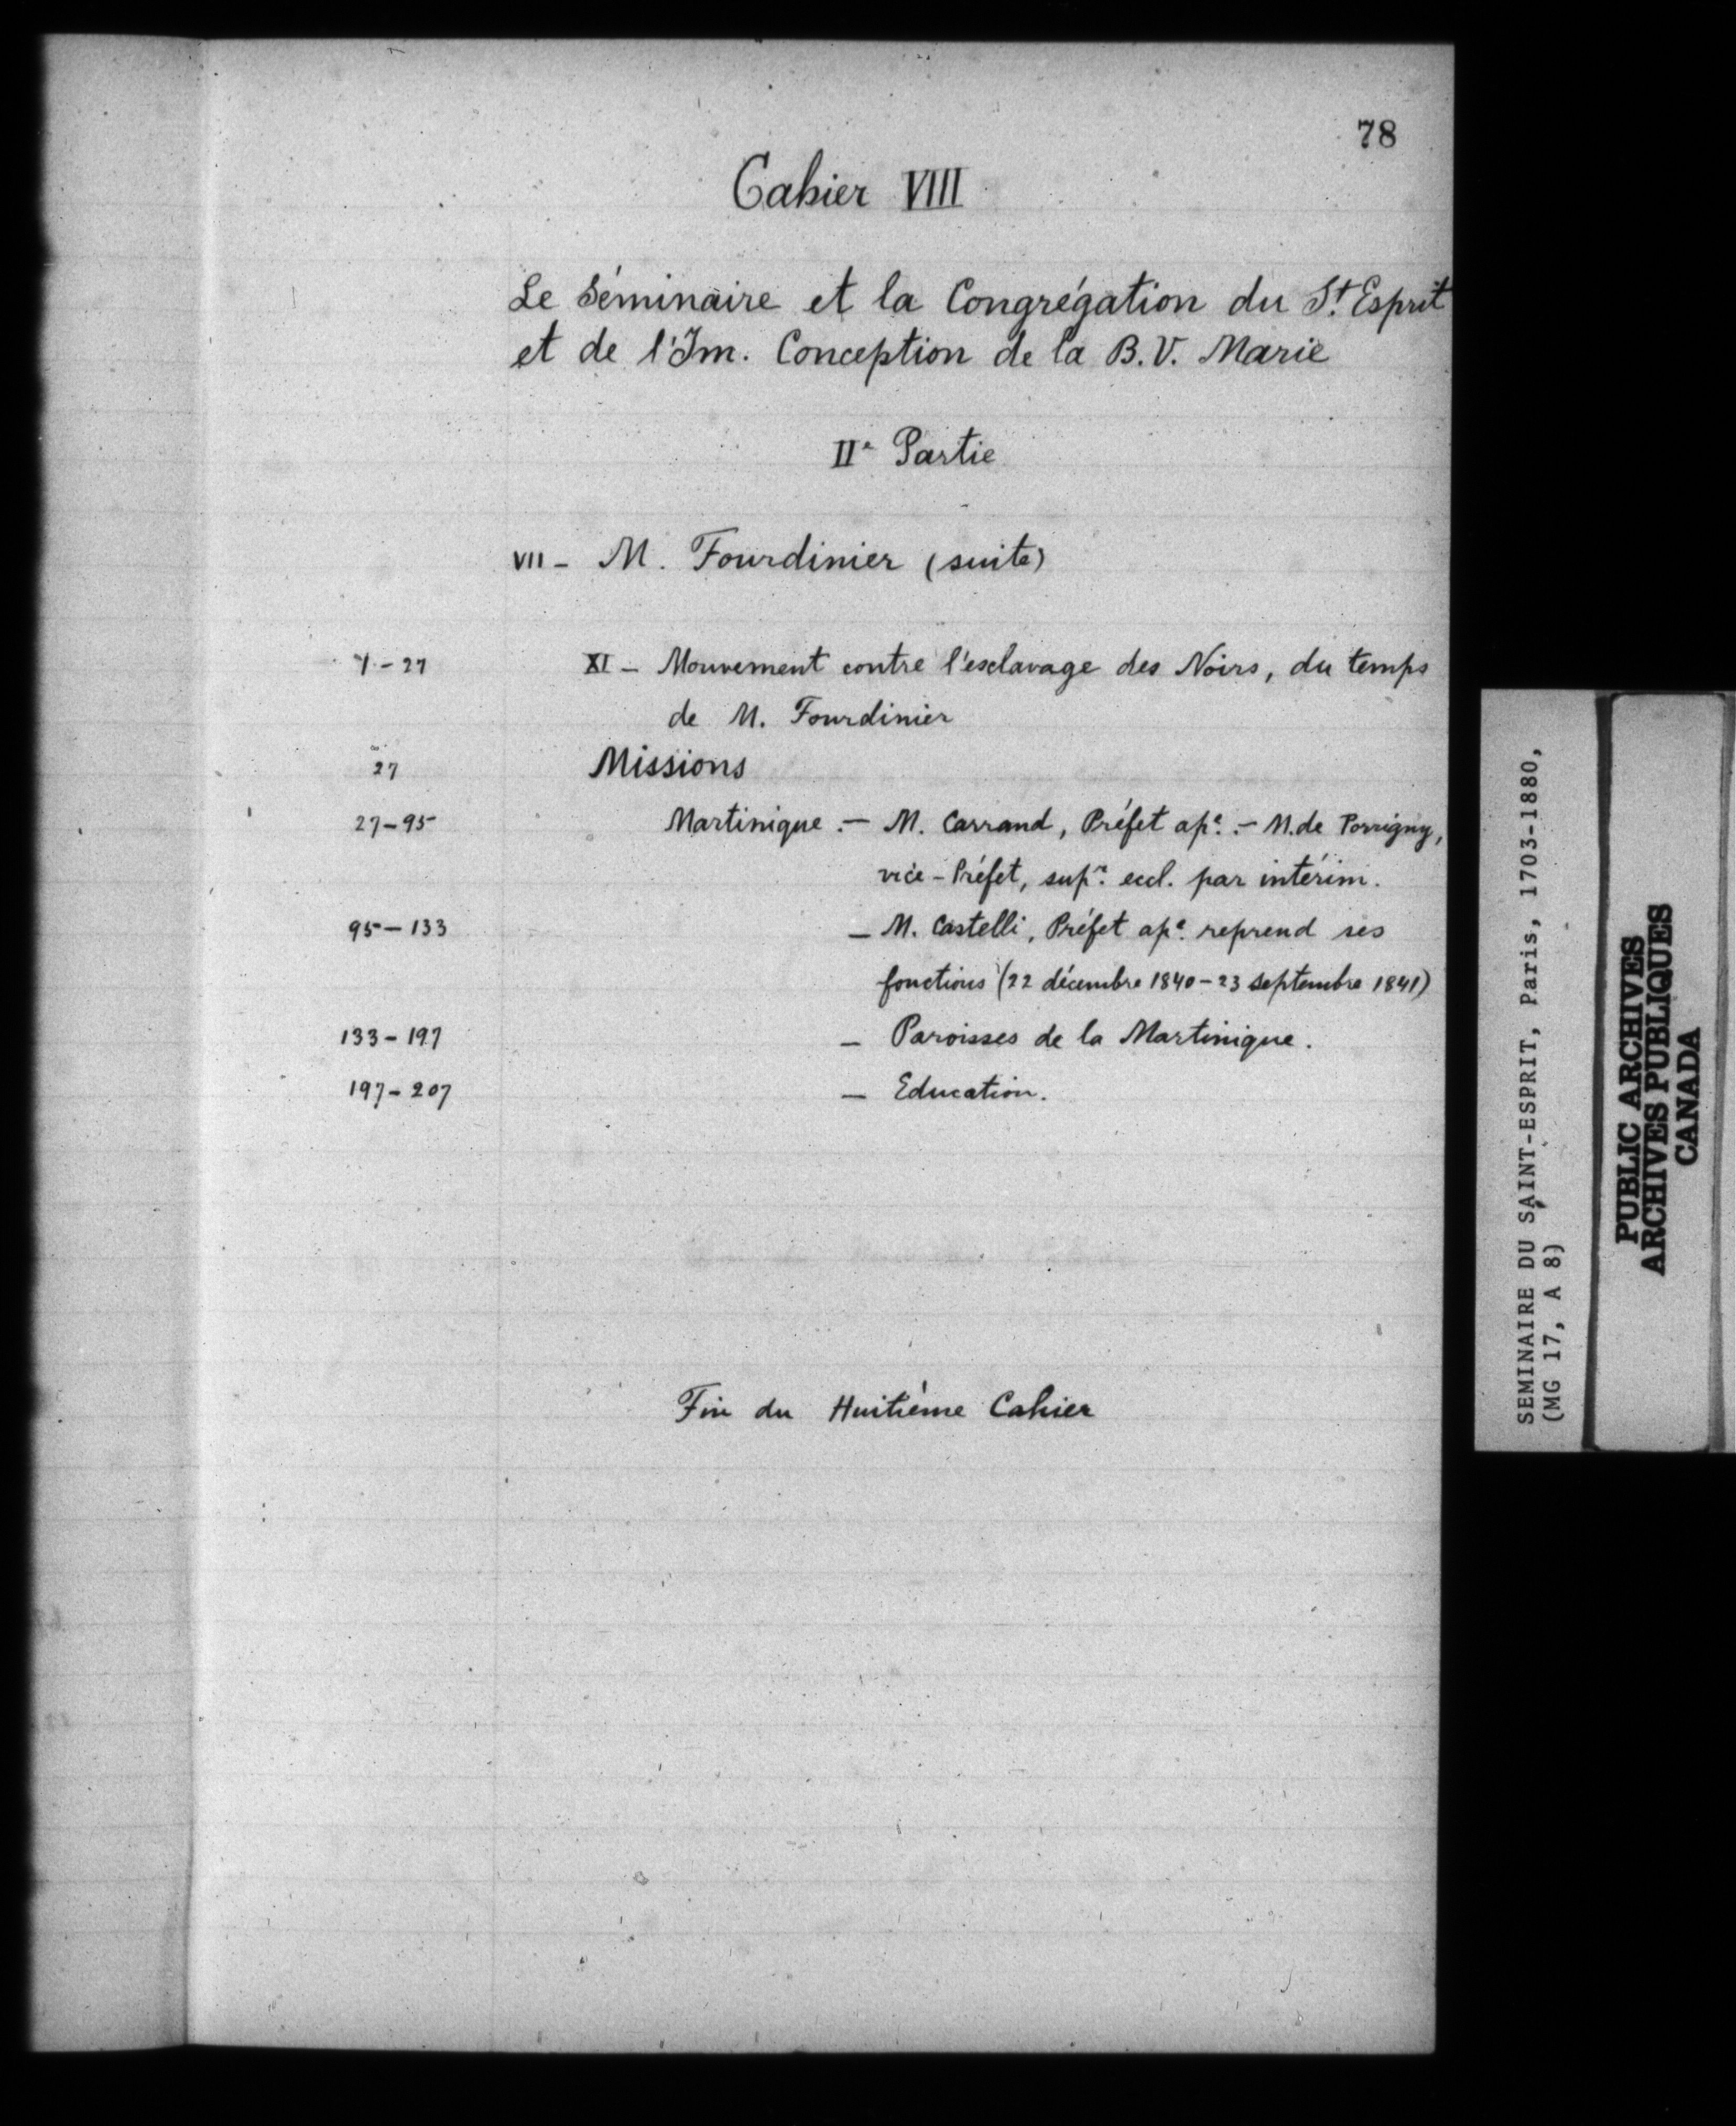 78
Cahier VIII
Le Séminaire et la Congrégation du St. Esprit
et de l'Im. Conception de la B. V. Marie
IIe Partie
VII - M. Fourdinier (suite)
1 - 27 XI - Mouvement contre l'esclavage des Noirs, du temps
de M. Fourdinier
27 Missions
27-95 Martinique. - M. Carrand, Préfet ape. - M. de Porrigny,
vice-Préfet, supr. eccl. par intérim.
95-133 - M. Castelli, Préfet ape. reprend ses
fonctions (22 décembre 1840 - 23 septembre 1841)
133-197 - Paroisses de la Martinique.
197-207 - Education.
Fin du Huitième Cahier
SEMINAIRE DU SAINT-ESPRIT, Paris, 1703-1880,
(MG 17, A 8)
PUBLIC ARCHIVES
ARCHIVES PUBLIQUES
CANADA